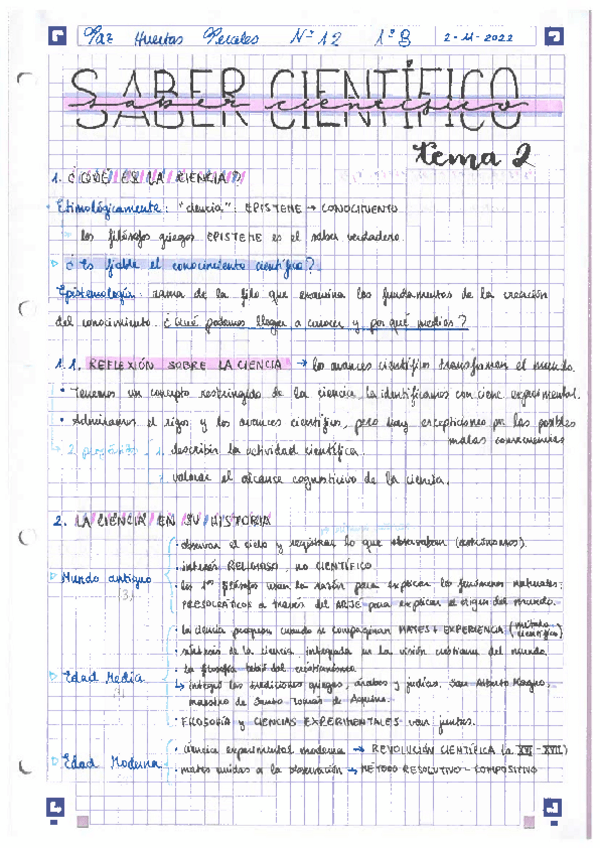 Paz Huertas Perales Nº 12 1º B 2-11-2022
SABER CIENTÍFICO
saber científico
tema 2
1. ¿QUÉ ES LA CIENCIA?
Etimológicamente: "ciencia": EPISTEME → CONOCIMIENTO
los filósofos griegos EPISTEME es el saber verdadero.
¿Es fiable el conocimiento científico?
Epistemología: rama de la filo que examina los fundamentos de la creación
del conocimiento. ¿Qué podemos llegar a conocer y por qué medios?
1.1. REFLEXIÓN SOBRE LA CIENCIA → los avances científios transforman el mundo.
• Tenemos un concepto restringido de la ciencia, la identificamos con ciene experimental.
• Admiramos el rigor y los avances científios, pero hay escepticismo por las posibles
malas consecuencias
↳ 2 propósitos 1. describir la actividad científica.
valorar el alcance cognoscitivo de la ciencia.
2. LA CIENCIA EN SU HISTORIA
• observar el cielo y registrar lo que observaban (astrónomos).
• interés RELIGIOSO, no CIENTÍFICO
Mundo antiguo
• los 1ºs filósofos usan la razón para explicar los fenómenos naturales:
(3)
PRESOCRÁTICOS a través del ARJÉ para explicar el origen del mundo.
• la ciencia progresa cuando se compaginan MATES + EXPERIENCIA (método científico)
• síntesis de la ciencia, integrada en la visión cristiana del mundo.
• la filosofía del cristianismo
Edad Media
↳ integró las tradiciones griegas, árabes y judías. San Alberto Magno,
maestro de Santo Tomás de Aquino.
• FILOSOFÍA y CIENCIAS EXPERIMENTALES van juntas.
• ciencia experimental moderna → REVOLUCIÓN CIENTÍFICA (s. XVI - XVII)
Edad Moderna
• mates unidas a la observación → MÉTODO RESOLUTIVO - COMPOSITIVO